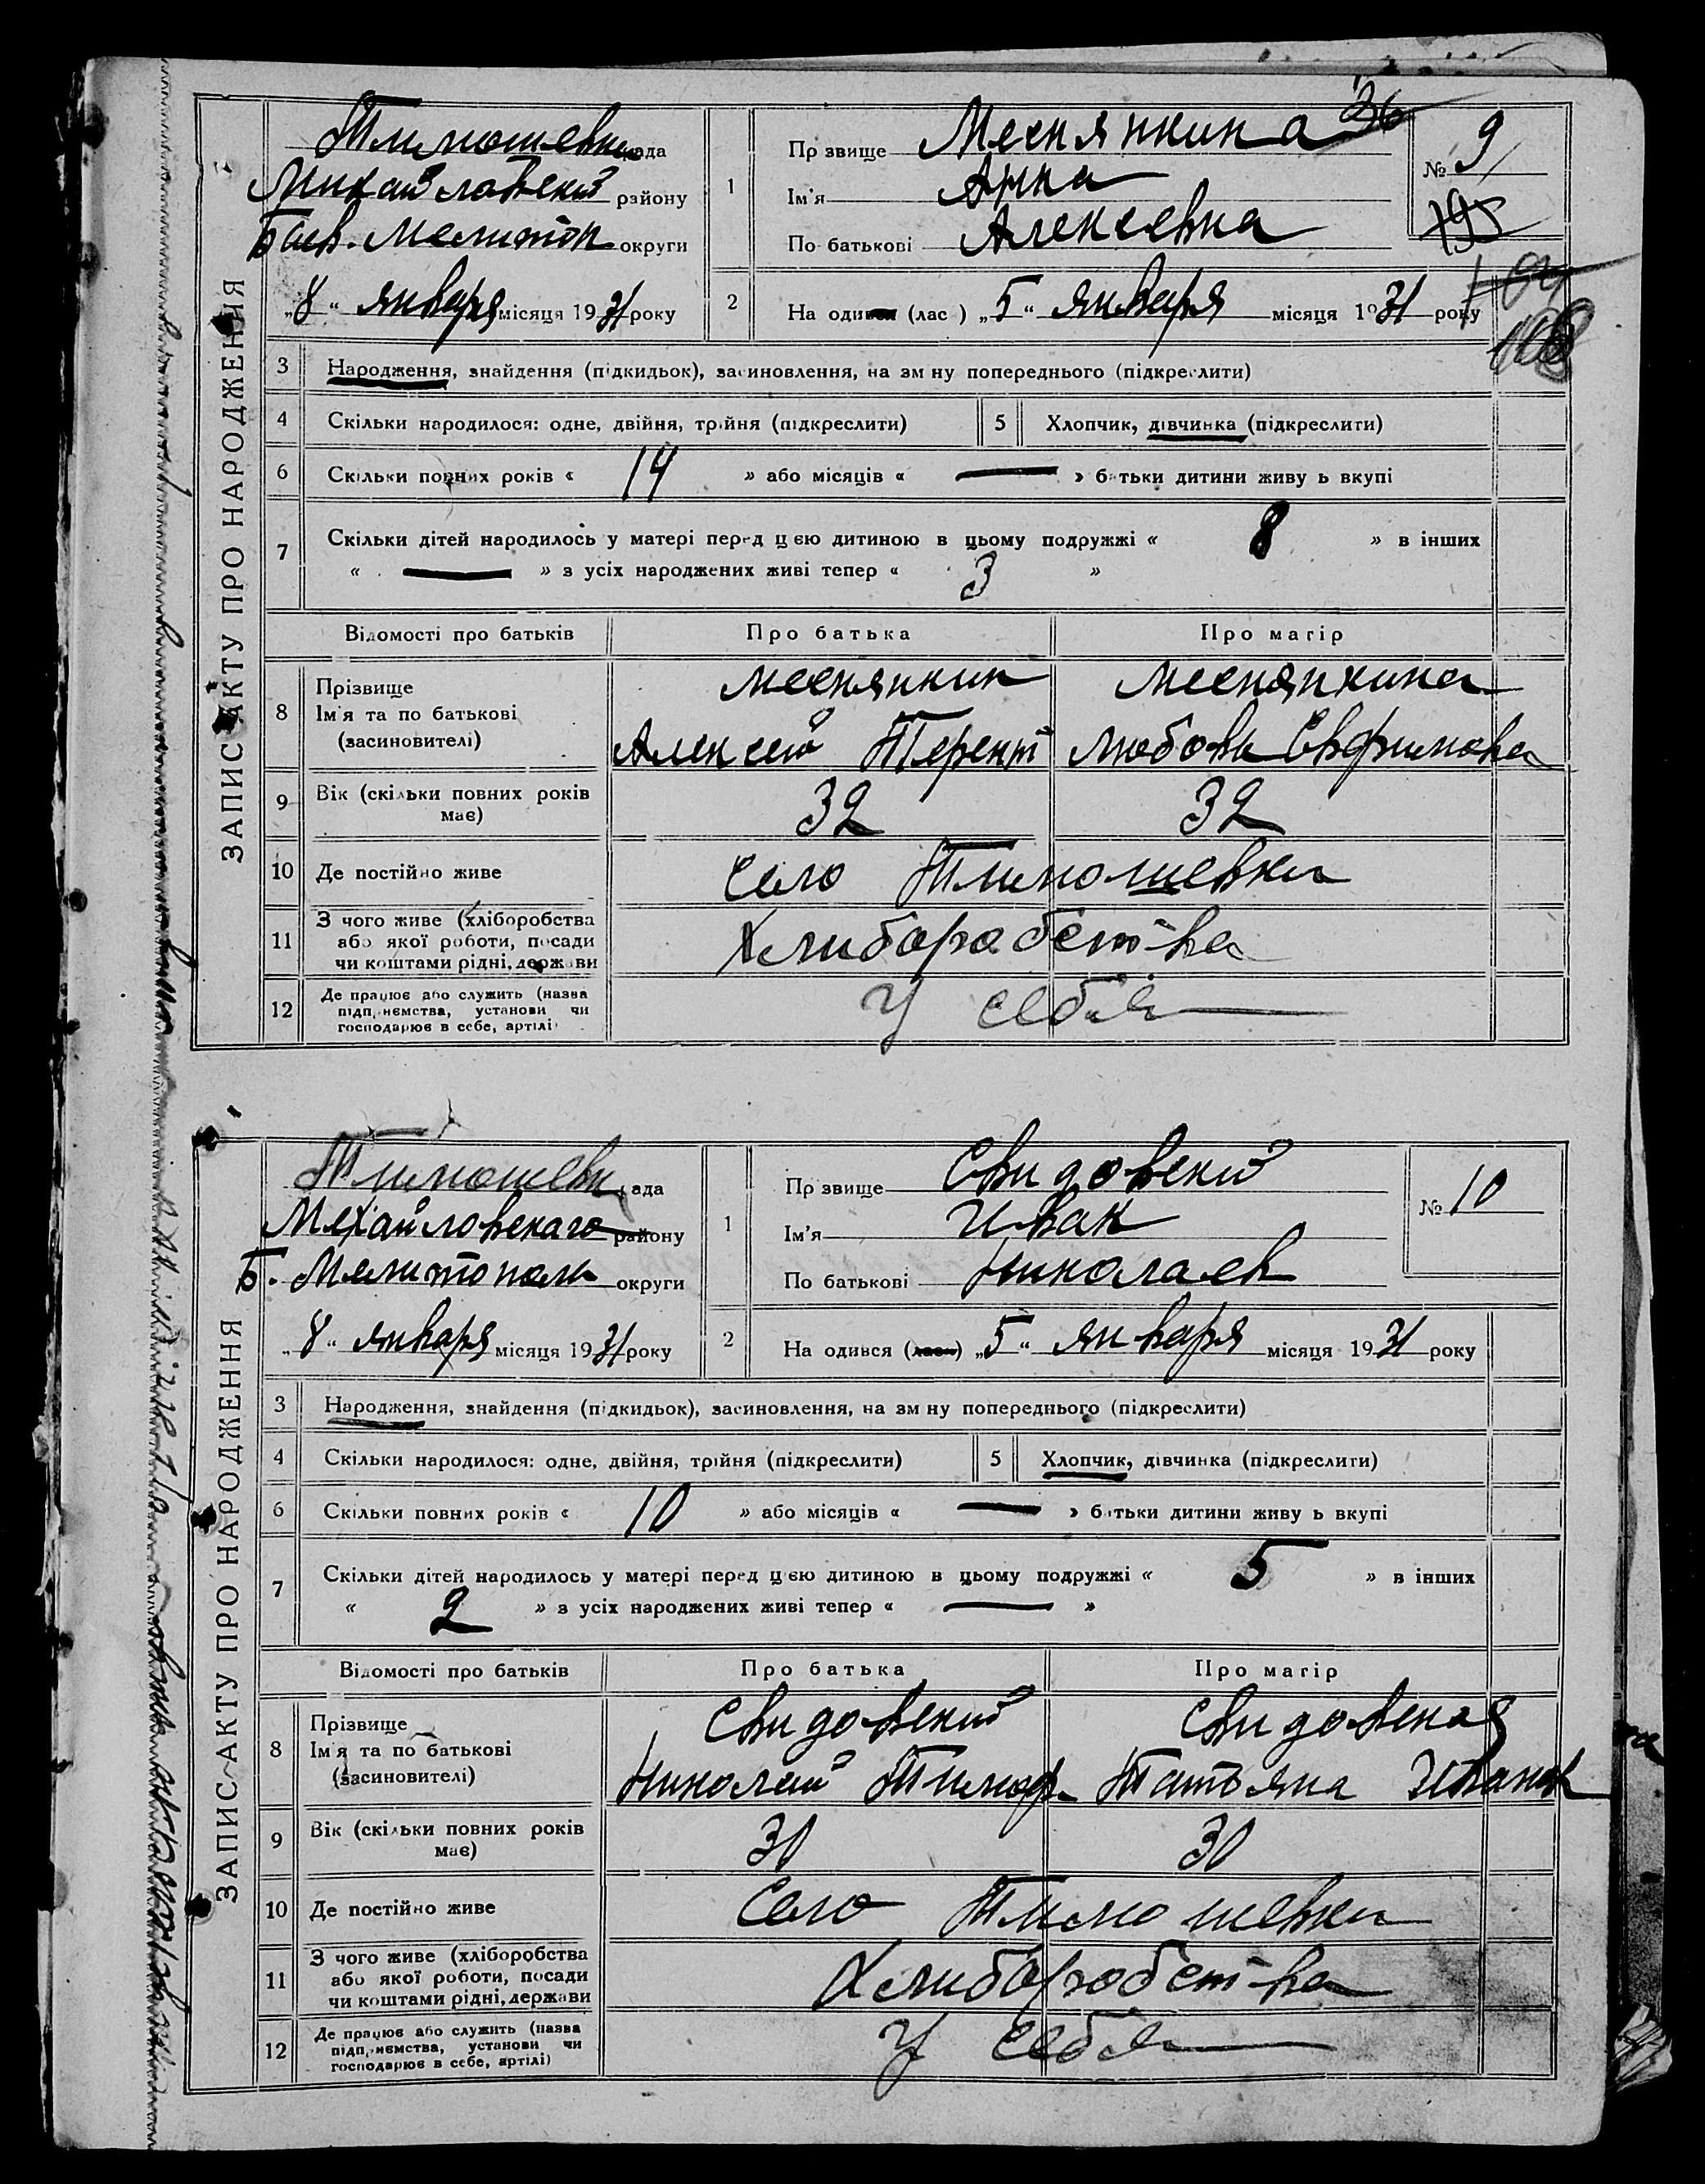 ЗАПИС АКТУ ПРО НАРОДЖЕННЯ
Тимошевки рада
Михайловской району
Бывш. Мелитоп округи
„8“ января місяця 1931 року
1
Прізвище Меснянкина
36
Ім'я Анна
По батькові Алексеевна
№ 9
195
108
2
На один (лас ) „5“ января місяця 1931 року
3 Народження, знайдення (підкидьок), засиновлення, на зм ну попереднього (підкреслити)
4 Скільки народилося: одне, двійня, трійня (підкреслити)
5 Хлопчик, дівчинка (підкреслити)
6 Скільки повних років « 14 » або місяців « — » батьки дитини живу ь вкупі
7 Скільки дітей народилось у матері перед цією дитиною в цьому подружжі « 8 » в інших
« — » з усіх народжених живі тепер « 3 »
Відомості про батьків Про батька Про матір
8 Прізвище Меснянкин Меснянкина
Ім'я та по батькові
(засиновителі) Алексей Терент Любовь Евфимова
9 Вік (скільки повних років має) 32 32
10 Де постійно живе село Тимошевки
11 З чого живе (хліборобства
або якої роботи, посади
чи коштами рідні, держави Хлиборобства
12 Де працює або служить (назва
підприємства, установи чи
господарює в себе, артілі) У себя
ЗАПИС АКТУ ПРО НАРОДЖЕННЯ
Тимошевк рада
Михайловскаго району
Б. Мелитополь округи
„8“ января місяця 1931 року
1
Пр звище Свидовский
Ім'я Иван
По батькові Николаев
№ 10
2
На одився (лась) „5“ января місяця 1931 року
3 Народження, знайдення (підкидьок), засиновлення, на зм ну попереднього (підкреслити)
4 Скільки народилося: одне, двійня, трійня (підкреслити)
5 Хлопчик, дівчинка (підкреслити)
6 Скільки повних років « 10 » або місяців « — » батьки дитини живу ь вкупі
7 Скільки дітей народилось у матері перед цією дитиною в цьому подружжі « 5 » в інших
« 2 » з усіх народжених живі тепер « — »
Відомості про батьків Про батька Про матір
8 Прізвище Свидовский Свидовская
Ім'я та по батькові
(засиновителі) Николай Тимоф. Татьяна Иванов
9 Вік (скільки повних років має) 30 30
10 Де постійно живе Село Тимошевки
11 З чого живе (хліборобства
або якої роботи, посади
чи коштами рідні, держави Хлиборобства
12 Де працює або служить (назва
підприємства, установи чи
господарює в себе, артілі) У себя